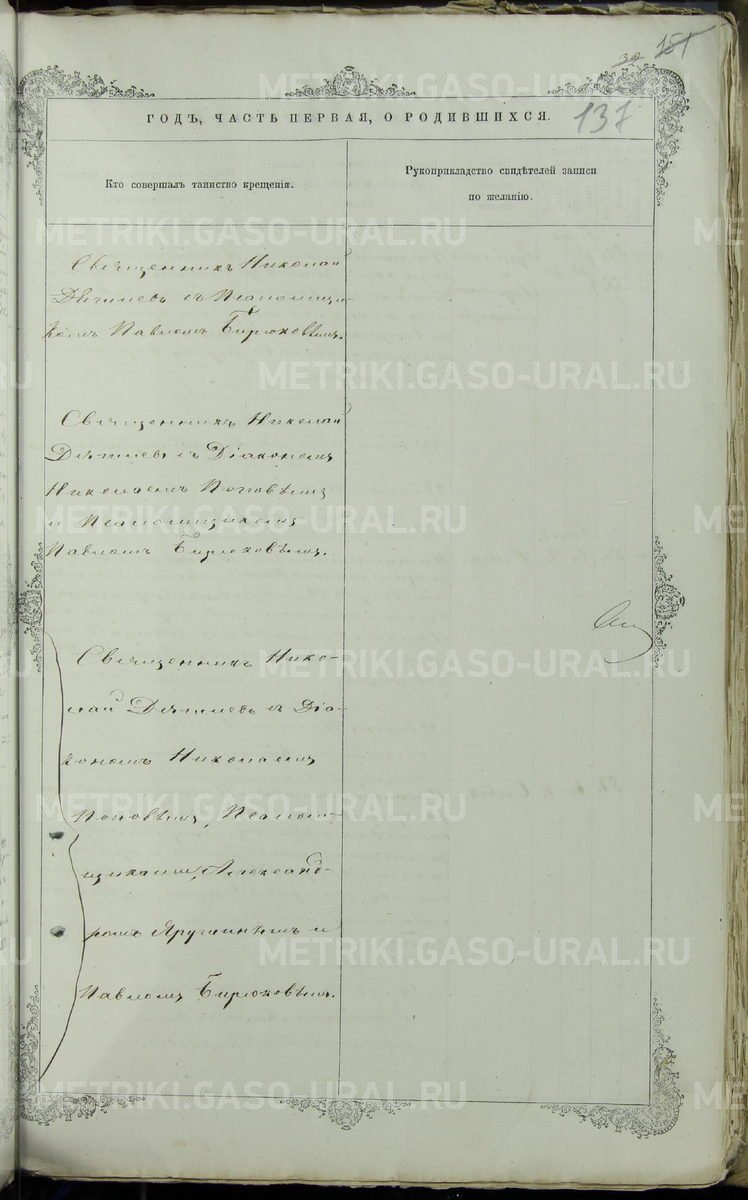 39 151
137
ГОДЪ, ЧАСТЬ ПЕРВАЯ, О РОДИВШИХСЯ.
Кто совершалъ таинство крещенія.
Рукоприкладство свидѣтелей записи
по желанію.
Священникъ Николай
съ Псаломщи-
комъ Павломъ Бирюковымъ.
Священникъ Николай
съ Діакономъ
Николаемъ Поповымъ
и Псаломщикомъ
Павломъ Бирюковымъ.
Священникъ Нико-
лай съ Діа-
кономъ Николаемъ
Поповымъ, Псалом-
щиками, Александ-
ромъ и
Павломъ Бирюковымъ.
METRIKI.GASO-URAL.RU